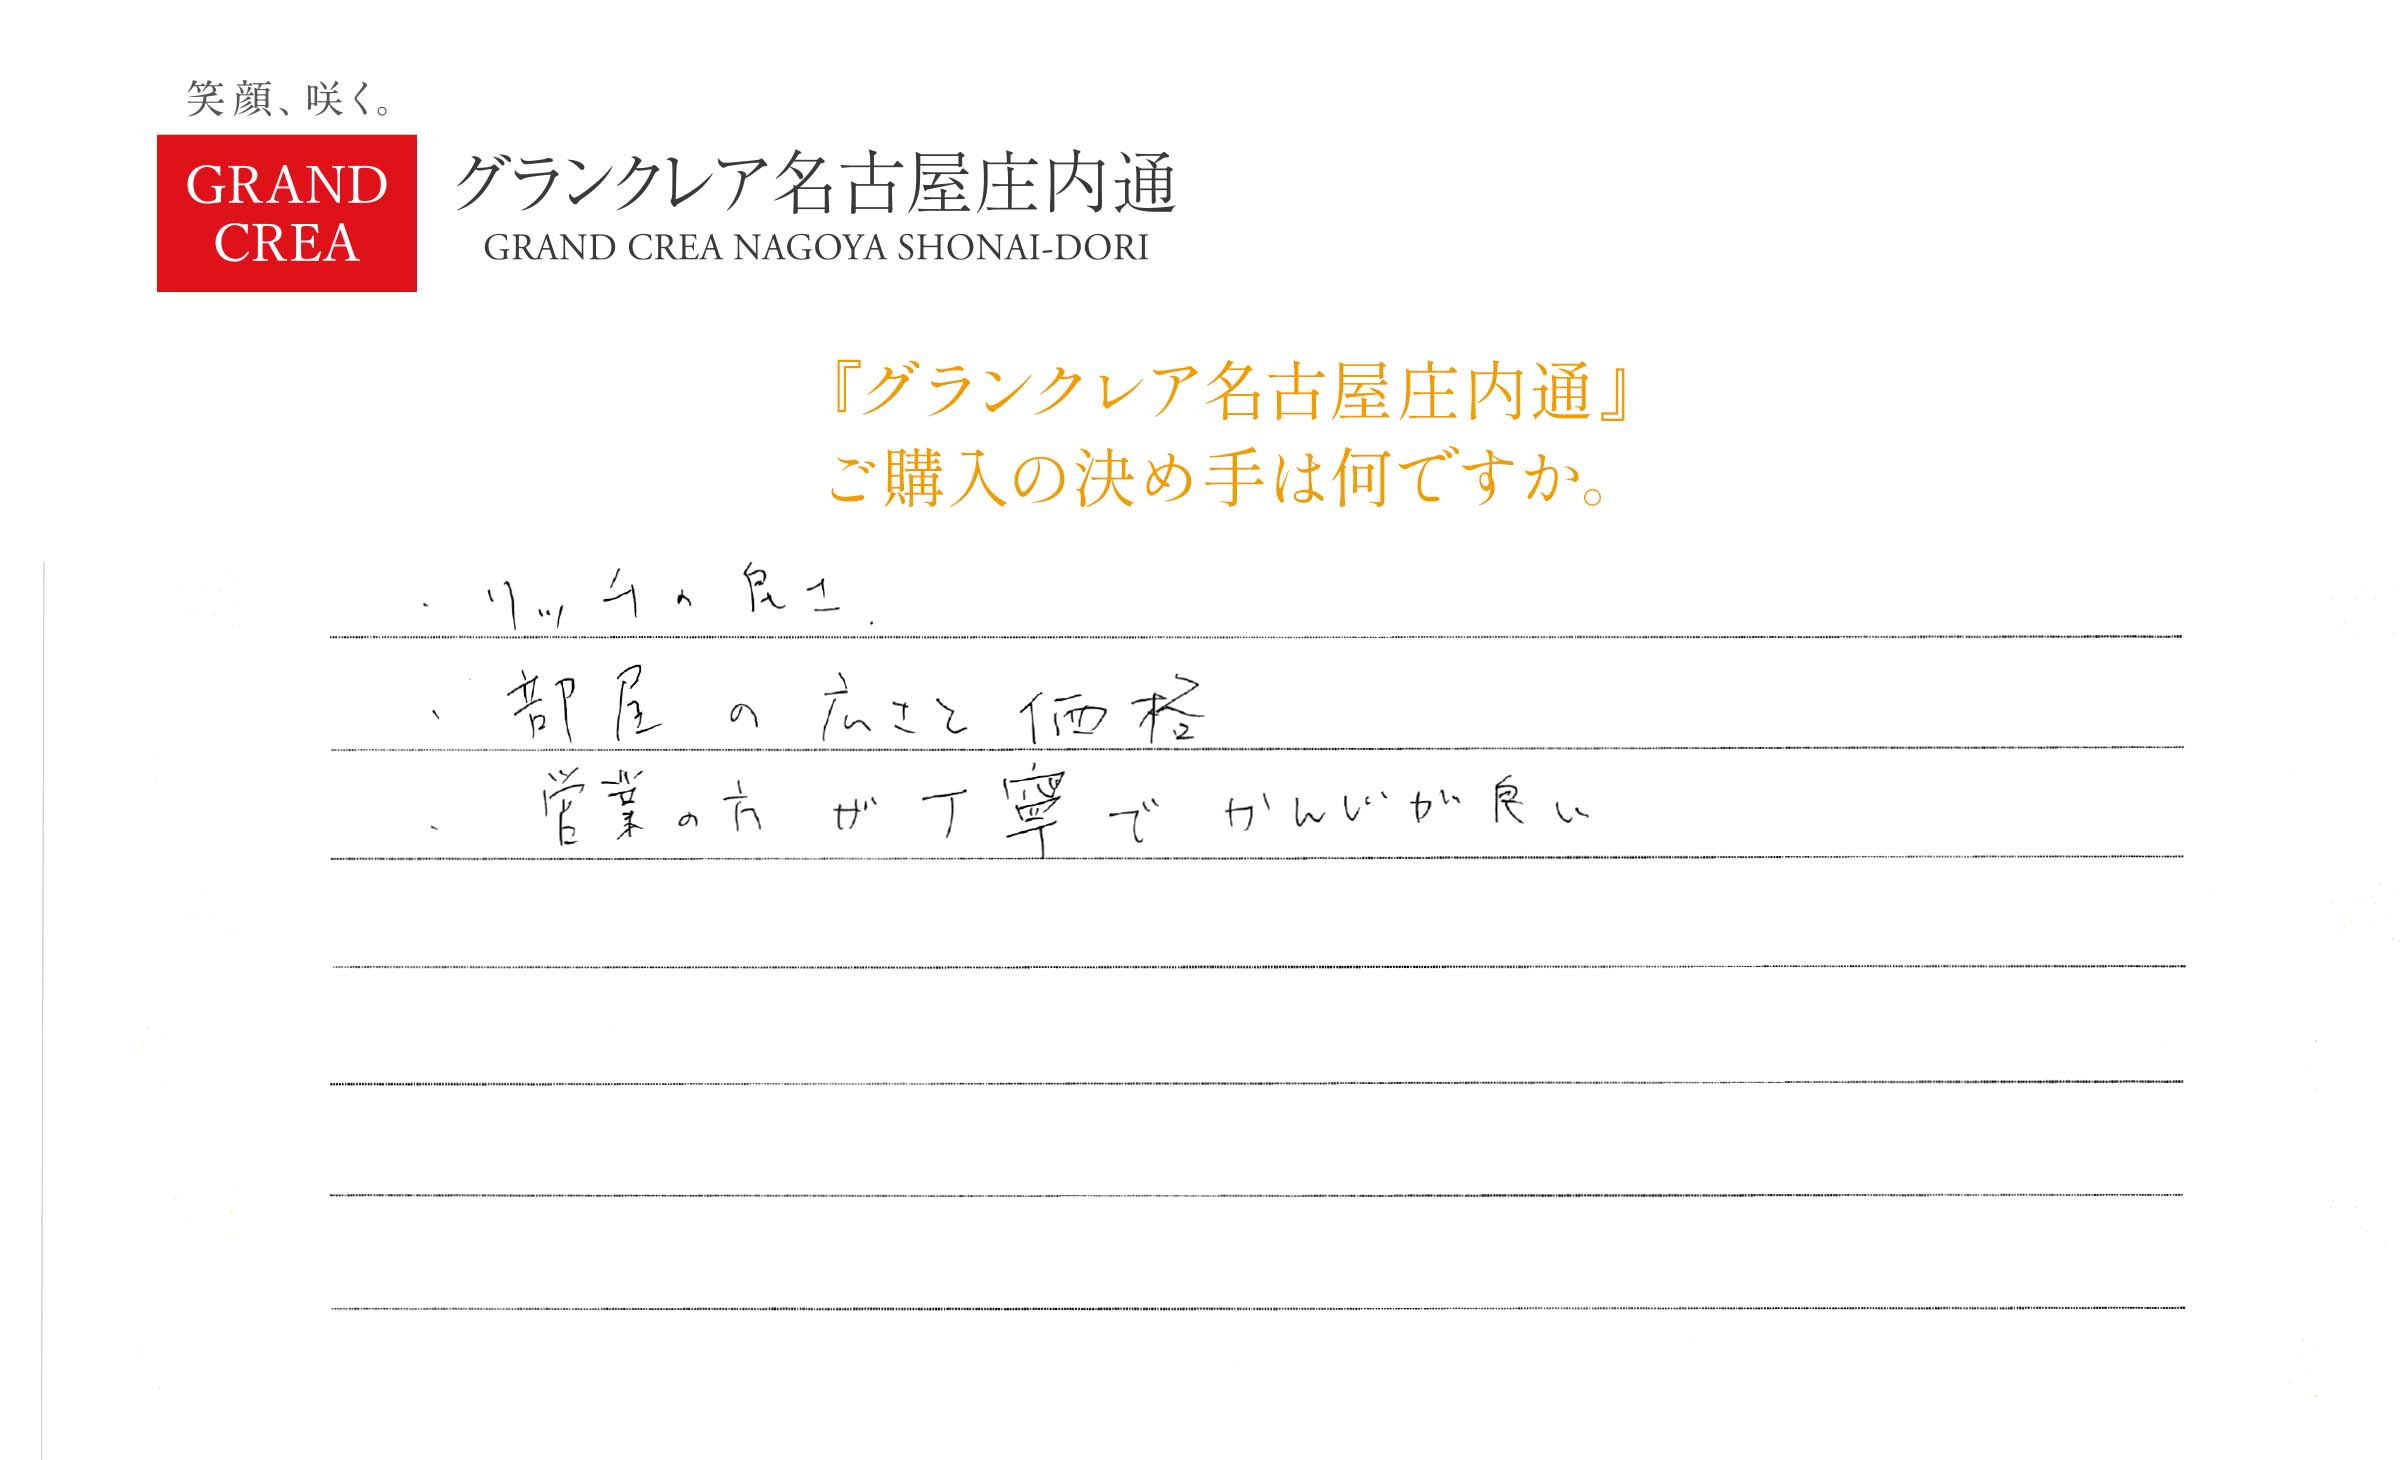 笑顔、咲く。
GRAND
CREA
グランクレア名古屋庄内通
GRAND CREA NAGOYA SHONAI-DORI
『グランクレア名古屋庄内通』
ご購入の決め手は何ですか。
・リッチの良さ.
・部屋の広さと価格
・営業の方が丁寧でかんじが良い